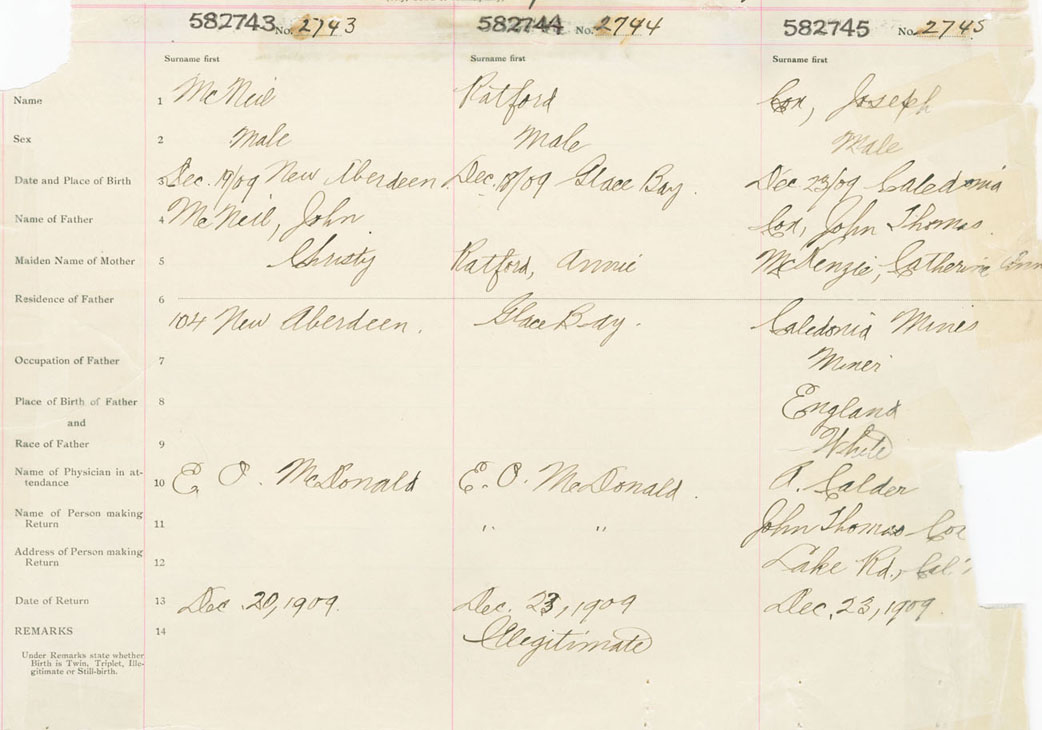 582743 No. 2743 582744 No. 2744 582745 No. 2745
Surname first Surname first Surname first
Name 1 McNeil Ratford Cox, Joseph
Sex 2 Male Male Male
Date and Place of Birth 3 Dec. 19/09 New Aberdeen Dec. 18/09 Glace Bay. Dec 23/09 Caledonia
Name of Father 4 McNeil, John Cox, John Thomas.
Maiden Name of Mother 5 Christy Ratford, Annie McKenzie, Catherine Ann
Residence of Father 6
104 New Aberdeen. Glace Bay. Caledonia Mines
Occupation of Father 7 Miner
Place of Birth of Father 8 England
and
Race of Father 9 White
Name of Physician in at-
tendance 10 E. O. McDonald E. O. McDonald. A. Calder
Name of Person making
Return 11 " " John Thomas Cox
Address of Person making
Return 12 Lake Rd., Cal.
Date of Return 13 Dec. 20, 1909. Dec. 23, 1909 Dec, 23, 1909.
REMARKS 14 Illegitimate
Under Remarks state whether
Birth is Twin, Triplet, Ille-
gitimate or Still-birth.